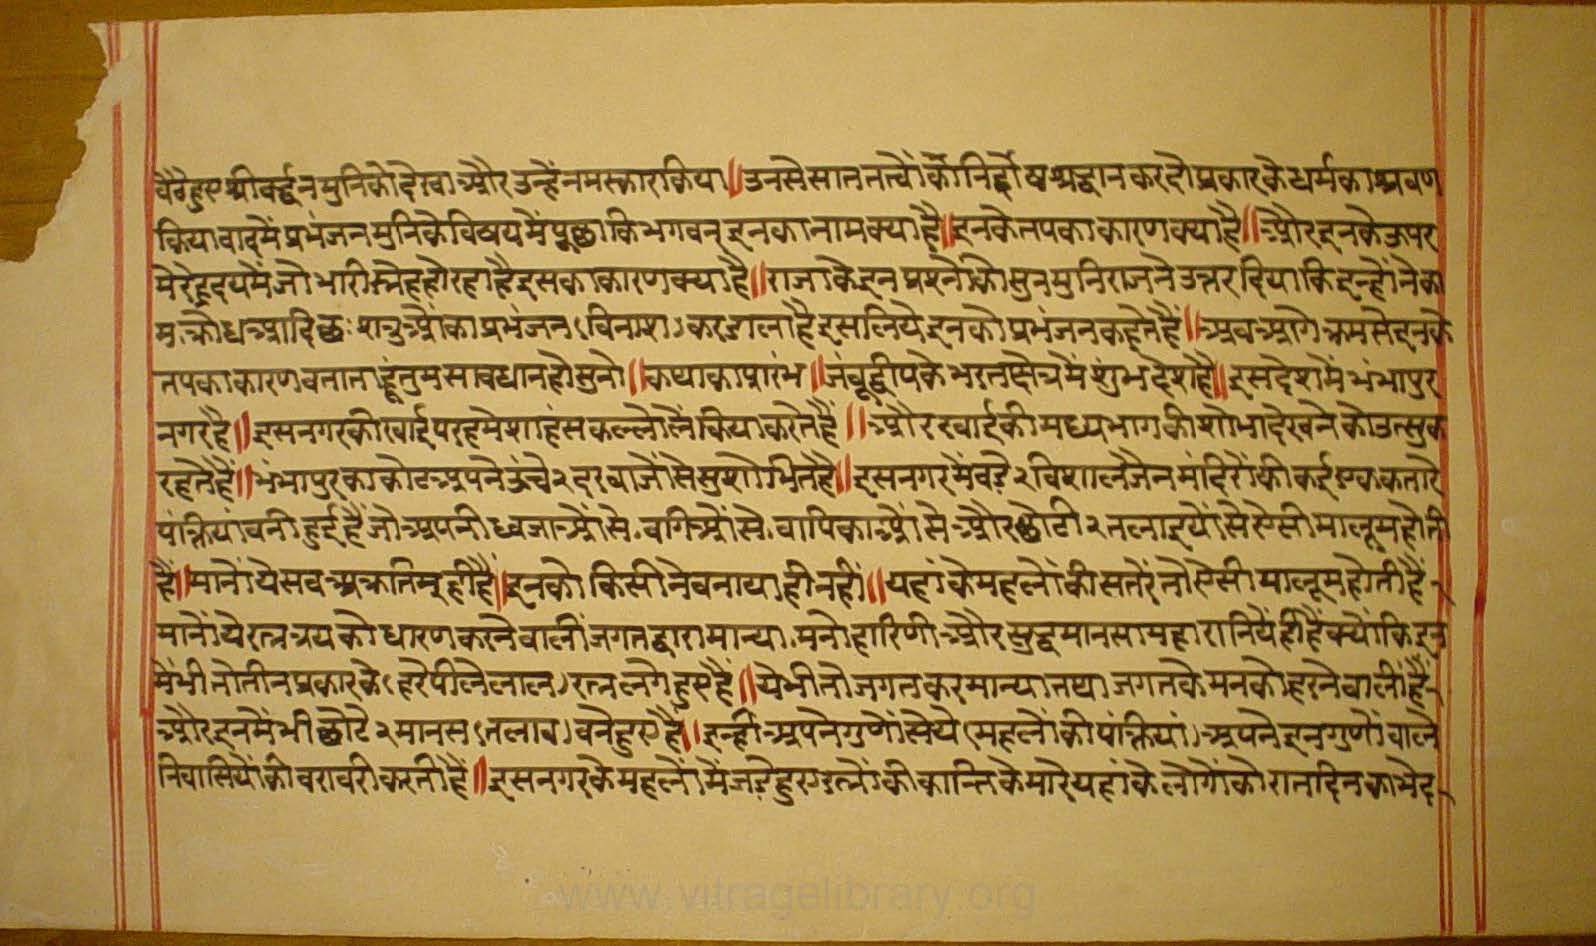 बैठेहुए श्रीवर्द्धनमुनिकोदेखा और उन्हेंनमस्कारकिया॥उनसेसाततत्वोंकोनिर्द्दोषश्रद्धानकरदोप्रकारकेधर्मकाश्रवण
कियावादमेंप्रभंजनमुनिकेविषयमेंपूछाकिभगवन्इनकानामक्याहै॥इनकेतपकाकारणक्याहै॥औरइनकेऊपर
मेरेहृदयमेंजोभारीस्नेहहोरहाहैइसकाकारणक्याहै॥राजाकेइनप्रश्नोंकोसुनमुनिराजनेउत्तरदियाकिइन्होंनेका
म,क्रोधआदिछःशत्रुओंकाप्रभंजन(विनाश)करडालाहैइसलियेइनकोप्रभंजनकहतेहैं॥अबआगेक्रमसेइनके
तपकाकारणबताताहूंतुमसावधानहोसुनो॥कथाकाप्रारंभ॥जंबूद्वीपकेभरतक्षेत्रमेंशुंभदेशहै॥इसदेशमेंभंभापुर
नगरहै॥इसनगरकीखाईपरहमेशाहंसकल्लोलेंकियाकरतेहैं॥औरखाईकीमध्यभागकीशोभादेखनेकोउत्सुक
रहतेहैं॥भंभापुरकाकोटअपनेऊंचे२दरवाजोंसेसुशोभितहै॥इसनगरमेंबड़े२विशालजैनमंदिरोंकीकईएककतारे
पंक्तियांबनीहुईहैंजोअपनीध्वजाओंसे,बगिओंसे,वापिकाओंसेऔरछोटी२तलाइयोंसेऐसीमालूमहोती
हैं॥मानोंयेसबअक्रतिमहीहैं॥इनकोकिसीनेबनायाहीनहीं॥यहांकेमहलोंकीसतरेंतोऐसीमालूमहोतीहैं-
मानोंयेरत्नत्रयकोधारणकरनेवालींजगतद्वारामान्या,मनोहारिणीऔरसुद्धमानसामहारानियेंहीहैंक्योंकिइन
मेंभीतोतीनप्रकारके(हरेपीलेलाल)रत्नलगेहुएहैं॥येभीतोजगतकरमान्यातथाजगतकेमनकोहरनेवालींहैं-
औरइनमेंभीछोटे२मानस(तलाब)बनेहुएहैं॥इन्हींअपनेगुणोंसेये(महलोंकीपंक्तियां)अपनेइनगुणोंवाले
निवासियोंकीबराबरीकरतीहैं॥इसनगरकेमहलोंमेंजड़ेहुएरत्नोंकीकान्तिकेमारेयहांकेलोगोंकोरातदिनकाभेद-
www.vitragelibrary.org